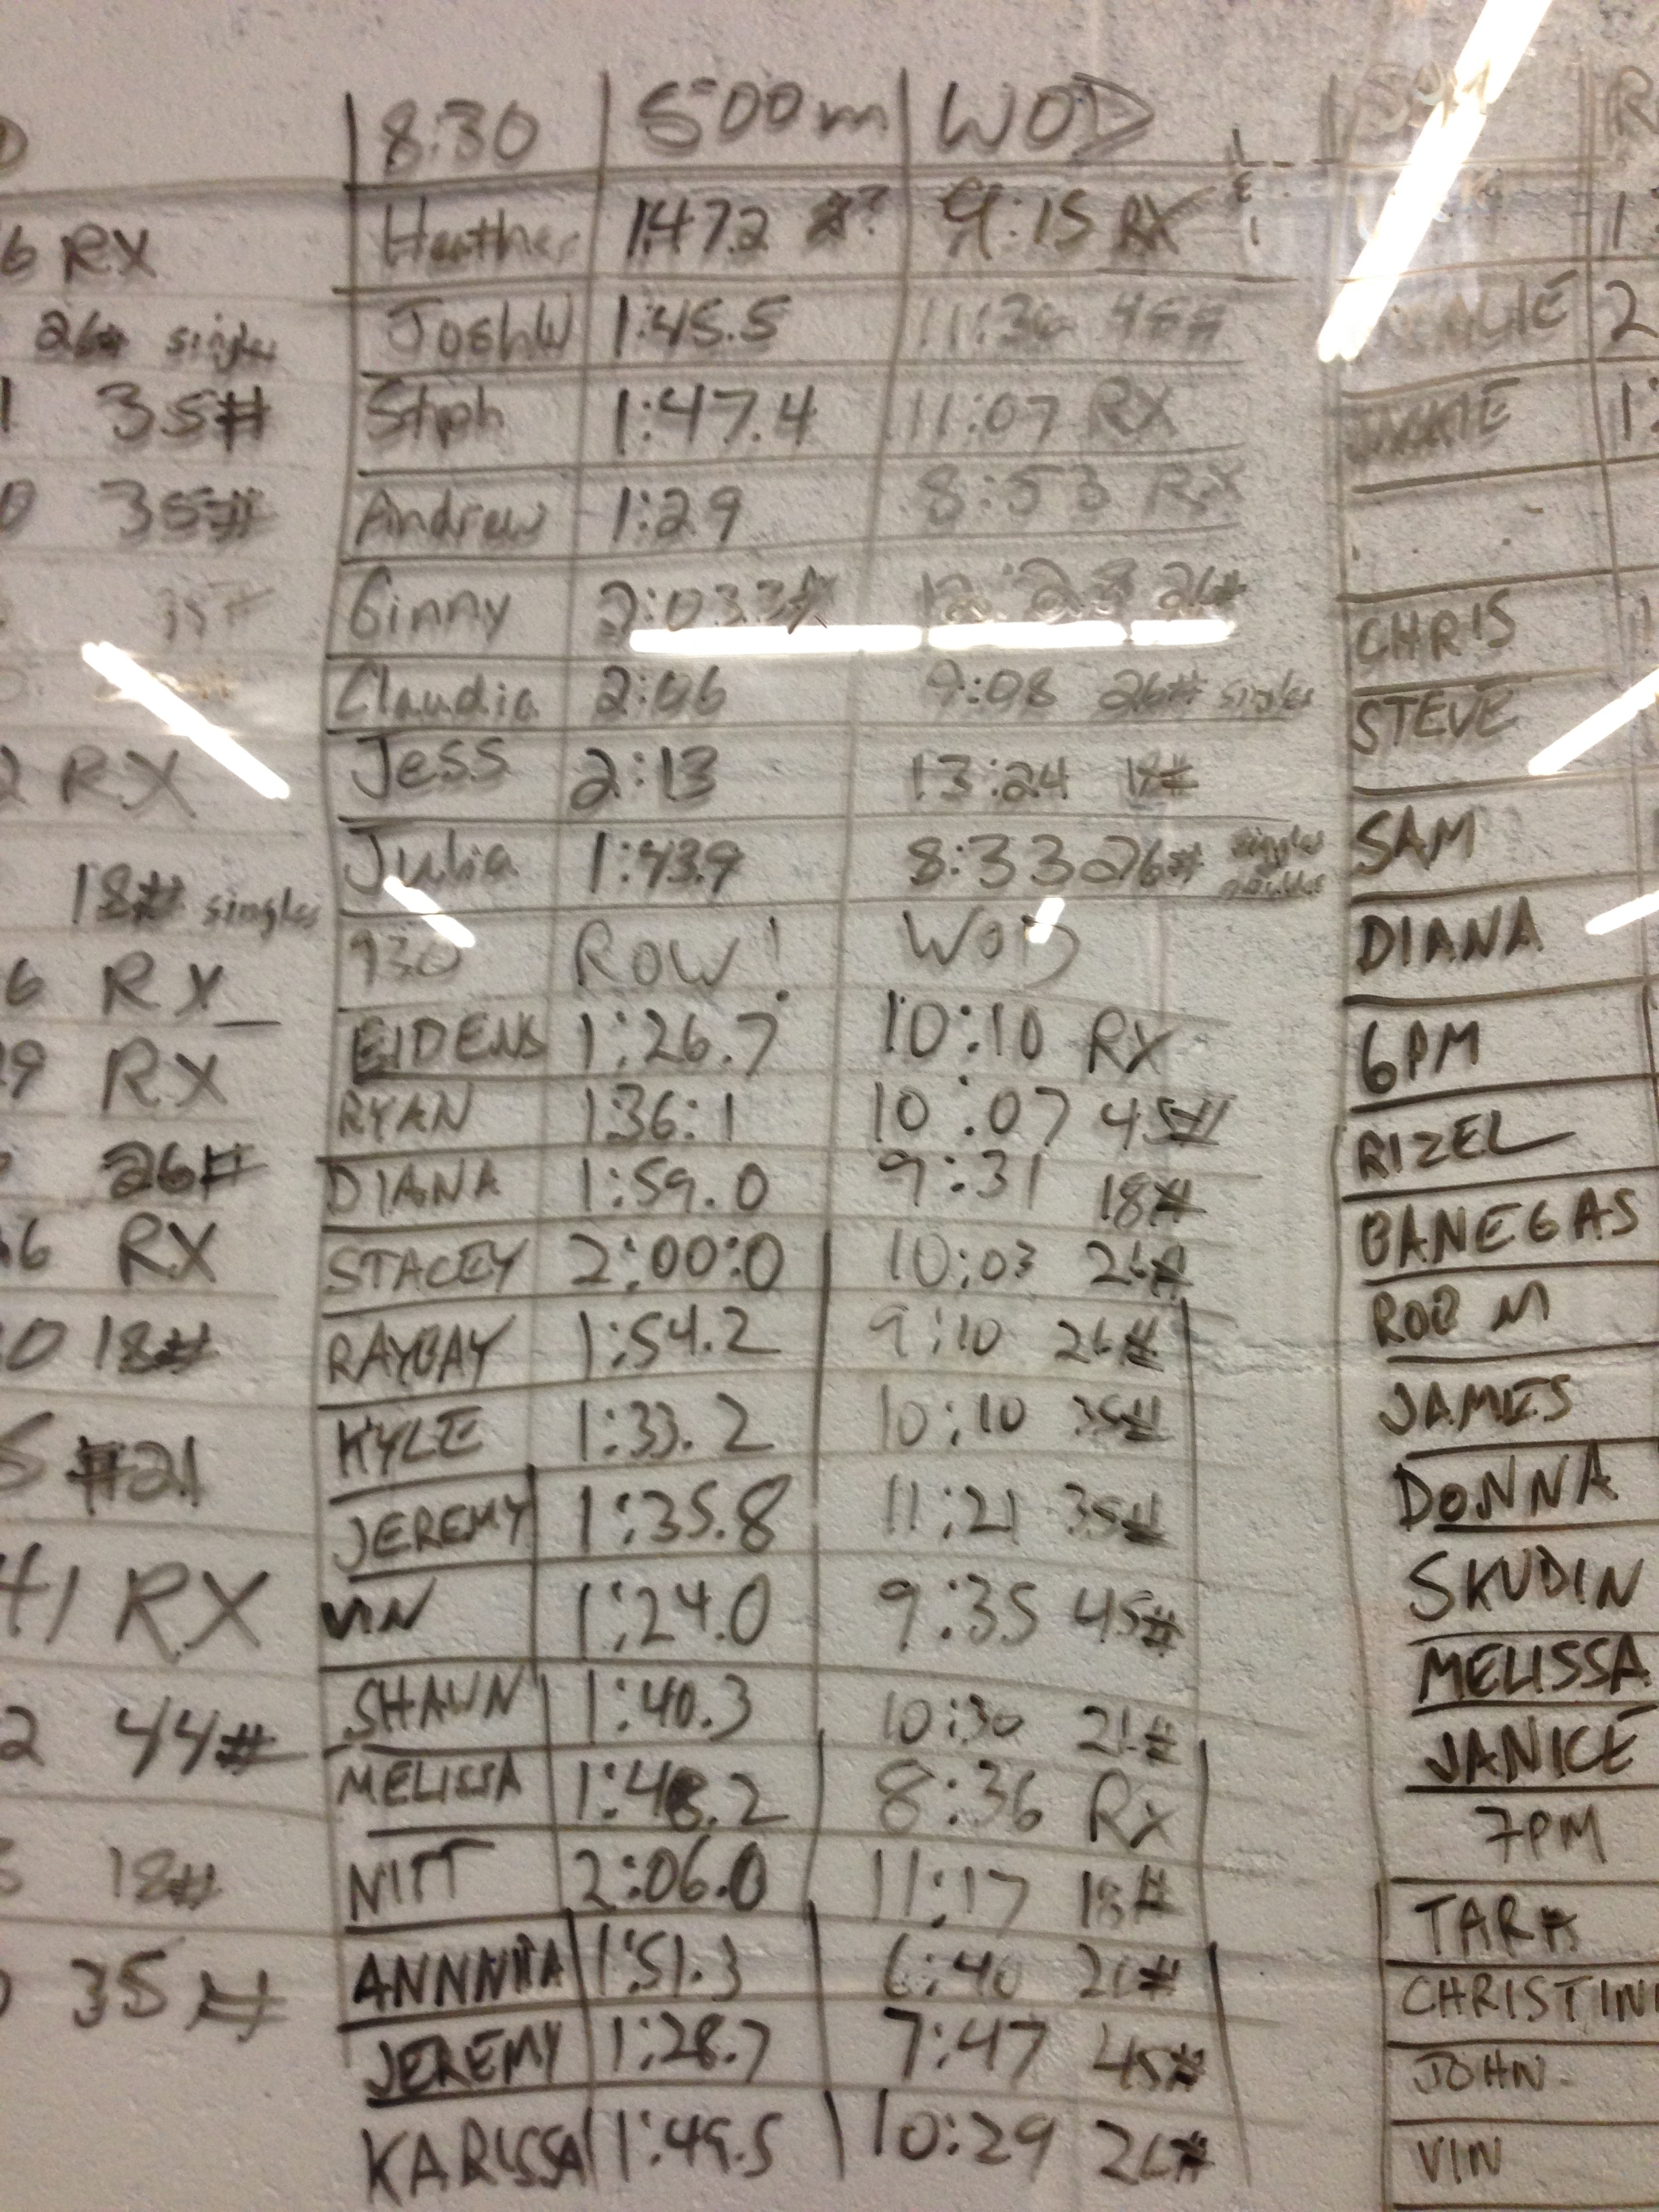 8:30 500m WOD
6 RX Heather 1:47.2 9:15 RX
26# singles Josh W 1:45.5 11:36 45#
35# Steph 1:47.4 11:07 RX
35# Andrew 1:29 8:53 RX
35# Ginny 2:03.3 12:28 26# CHRIS
Claudia 2:06 9:08 26# singles STEVE
2 RX Jess 2:13 13:24 18# SAM
18# singles Julia 1:43.9 8:33 26# singles DIANA
6 RX 930 ROW! WOD 6PM
9 RX EIDENS 1:26.7 10:10 RX
RYAN 136:1 10:07 45# RIZEL
26# DIANA 1:59.0 9:31 18# BANEGAS
6 RX STACEY 2:00:0 10:03 26# ROB M
0 18# RAYBAY 1:54.2 9:10 26# JAMES
5 #21 KYLE 1:33.2 10:10 35# DONNA
JEREMY 1:35.8 11:21 35# SKUDIN
41 RX VIN 1:24.0 9:35 45# MELISSA
2 44# SHAWN 1:40.3 10:30 21# JANICE
MELISSA 1:48.2 8:36 RX 7PM
18# NITT 2:06.0 11:17 18# TARA
35# ANNNITA 1:51.3 6:40 26# CHRISTIN
JEREMY 1:28.7 7:47 45# JOHN
KARISSA 1:49.5 10:29 26# VIN